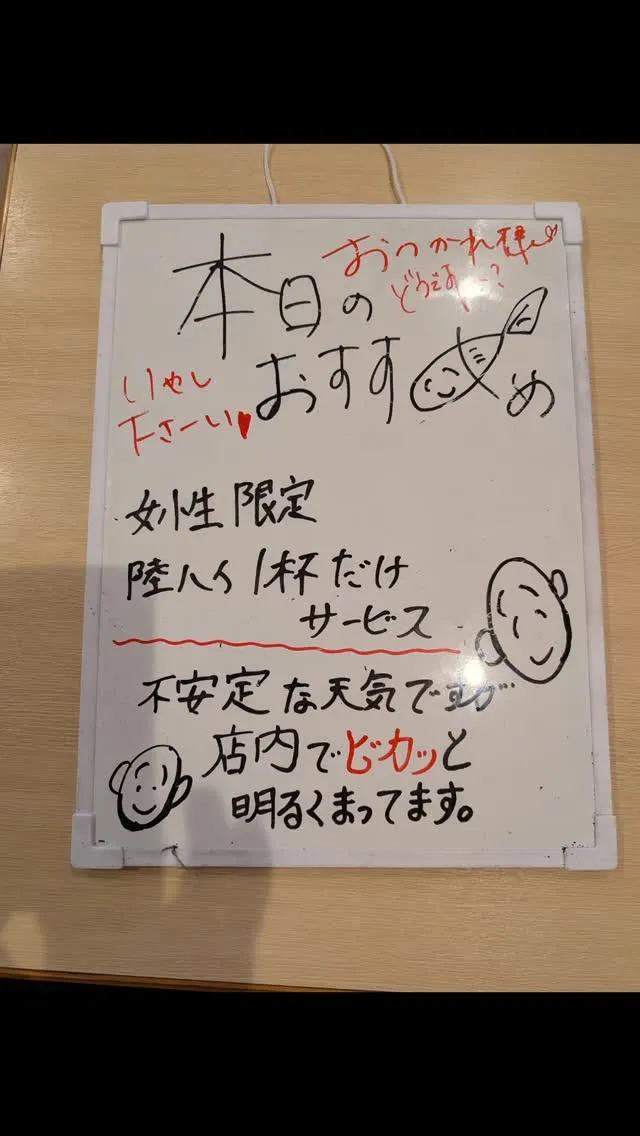 おつかれ様
本日の
おすすめ
いやし
下さーい♥
女性限定
陸ハイ1杯だけ
サービス
不安定な天気ですが
店内でピカッと
明るくまってます。